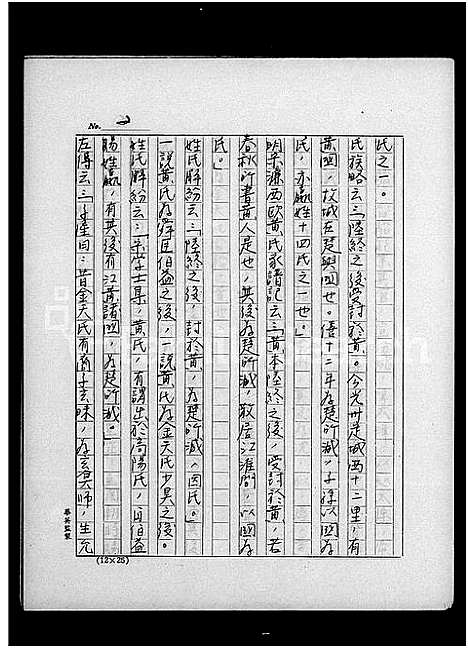 No. 2
氏之一。
氏族略云:「陸終之後受封於黃。今光州定城西十二里,有
黃國,故城在楚與國也。僖十二年為楚所滅,子孫以國為
氏,亦嬴姓十四氏之一也。」
明宋濂西歐黃氏家譜記云:「黃本陸終之後,受封於黃,若
春秋所書黃人是也,其後為楚所滅,散居江淮間,以國為
氏。」
姓氏辭紛云:「陸終之後,封於黃,為楚所滅,因氏。」
一說黃氏為舜臣伯益之後,一說黃氏為金天氏少昊之後。
姓氏辭紛云:「宋學士集,黃氏,有謂出於高陽氏,曰伯益
賜姓嬴,有其後有江黃諸國,為楚所滅。」
左傳云:「子產曰:昔金天氏有裔子玄昧,為玄冥師,生允
(12×25)